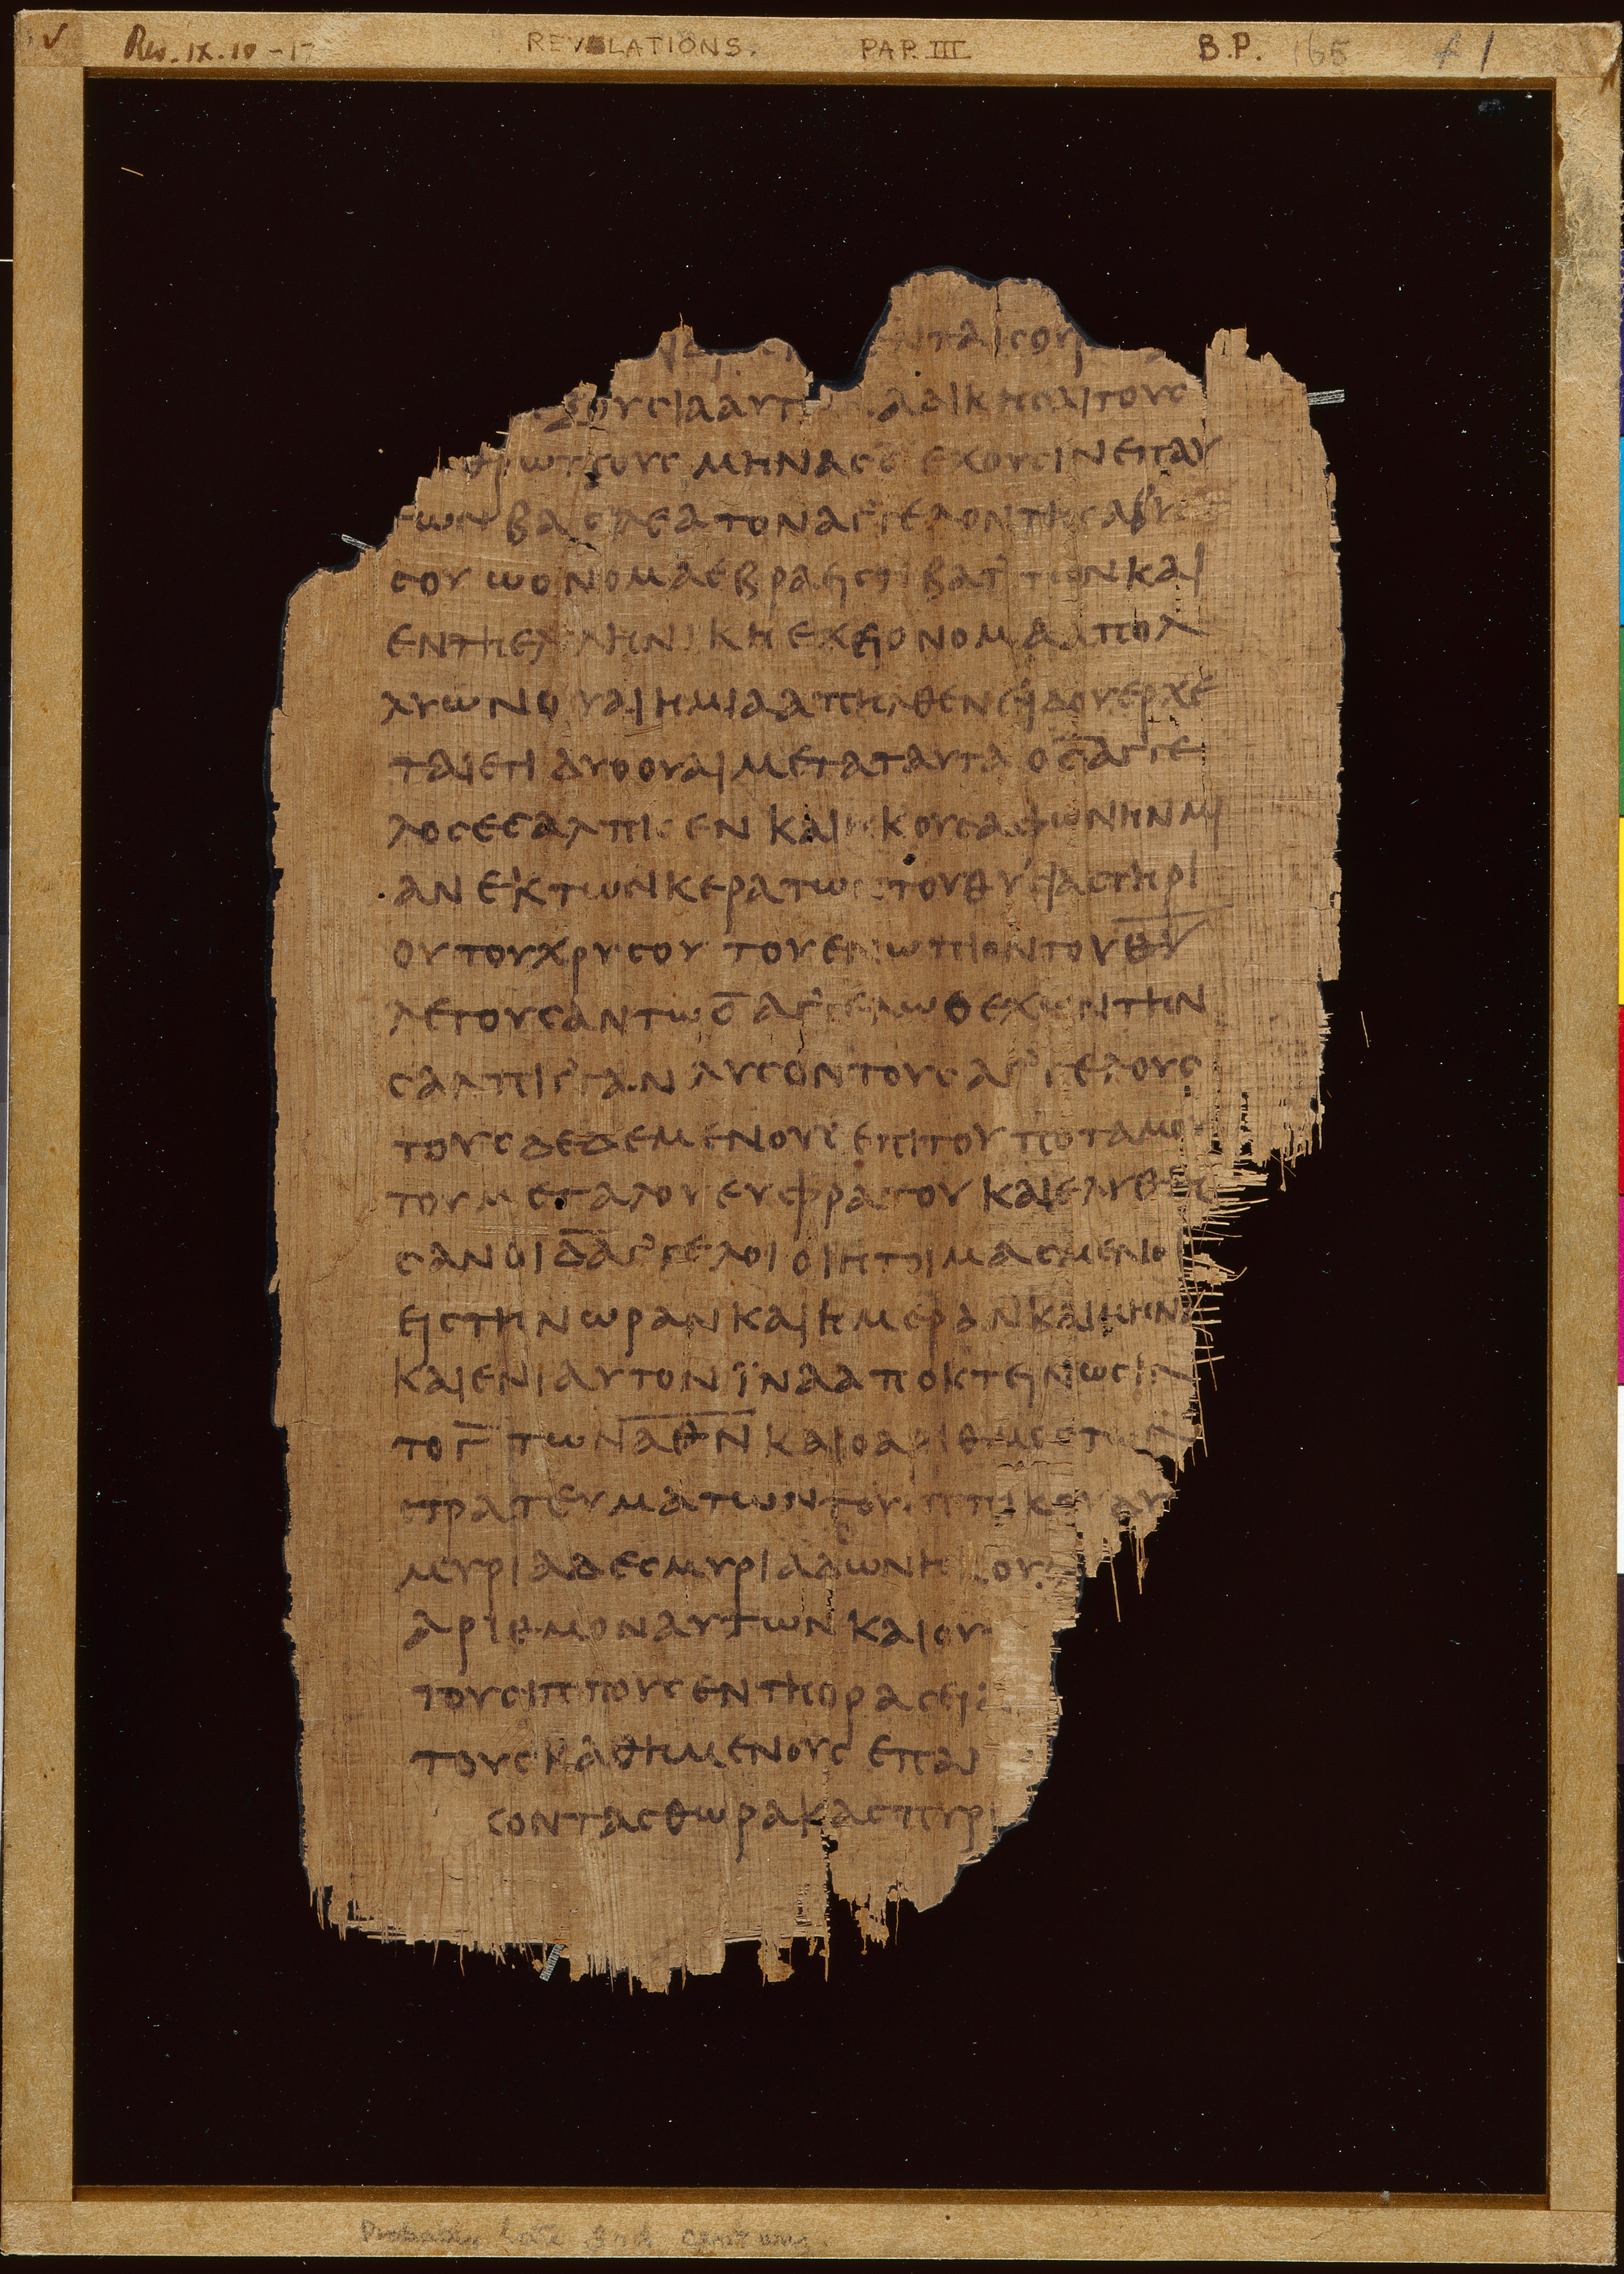 Rev. IX. 10-17 REVELATIONS. PAP. III B.P.
ΝΤΑΙϹΟΥΡ
ΞΟΥϹΙΑΑΥΤ ΑΔΙΚΗϹΑΙΤΟΥϹ
ΜΗΝΑϹΕ̅ ΕΧΟΥϹΙΝΕΠΑΥ
ΤΩΝΒΑϹΙΛΕΑΤΟΝΑΓ’ΓΕΛΟΝΤΗϹΑΒΥϹ
ϹΟΥΩΟΝΟΜΑΕΒΡΑΕΙϹΤΙΒΑΤ’ΤΩΝΚΑΙ
ΕΝΤΗΕΛΛΗΝΙΚΗΕΧΕΙΟΝΟΜΑΑΠΟΛ
ΛΥΩΝΟΥΑΙΗΜΙΑΑΠΗΛΘΕΝΕΙΔΟΥΕΡΧΕ
ΤΑΙΕΤΙΔΥΟΟΥΑΙΜΕΤΑΤΑΥΤΑΟϚ̅ΑΓΓΕ
ΛΟϹΕϹΑΛΠΙϹΕΝΚΑΙΗΚΟΥϹΑΦΩΝΗΝΜΙ
ΑΝΕΚΤΩΝΚΕΡΑΤΩΝΤΟΥΘΥϹΙΑϹΤΗΡΙ
ΟΥΤΟΥΧΡΥϹΟΥΤΟΥΕΝΩΠΙΟΝΤΟΥΘ̅Υ̅
ΛΕΓΟΥϹΑΝΤΩϚ̅ΑΓ’ΓΕΛΩΟΕΧΩΝΤΗΝ
ϹΑΛΠΙΓ’ΓΑΝΛΥϹΟΝΤΟΥϹΑΓ’ΓΕΛΟΥϹ
ΤΟΥϹΔΕΔΕΜΕΝΟΥϹΕΠΙΤΟΥΠΟΤΑΜΟΥ
ΤΟΥΜΕΓΑΛΟΥΕΥΦΡΑΤΟΥΚΑΙΕΛΥΘΗ
ϹΑΝΟΙΔ̅ΑΓ’ΓΕΛΟΙΟΙΗΤΟΙΜΑϹΜΕΝΟΙ
ΕΙϹΤΗΝΩΡΑΝΚΑΙΗΜΕΡΑΝΚΑΙΜΗΝΑ
ΚΑΙΕΝΙΑΥΤΟΝΪΝΑΑΠΟΚΤΕΙΝΩϹΙΝ
ΤΟΓ̅ΤΩΝΑ̅Θ̅Ν̅ΚΑΙΟΑΡΙΘΜΟϹΤΩΝ
ϹΤΡΑΤΕΥΜΑΤΩΝΤΟΥΙΠΠΙΚΟΥΔΥ
ΜΥΡΙΑΔΕϹΜΥΡΙΑΔΩΝΗΚΟΥϹ
ΑΡΙΘΜΟΝΑΥΤΩΝΚΑΙΟΥ
ΤΟΥϹΙΠΠΟΥϹΕΝΤΗΟΡΑϹΕΙ
ΤΟΥϹΚΑΘΗΜΕΝΟΥϹΕΠΑΥ
ΧΟΝΤΑϹΘΩΡΑΚΑϹΠΥΡΙ
Probably late 3rd century.